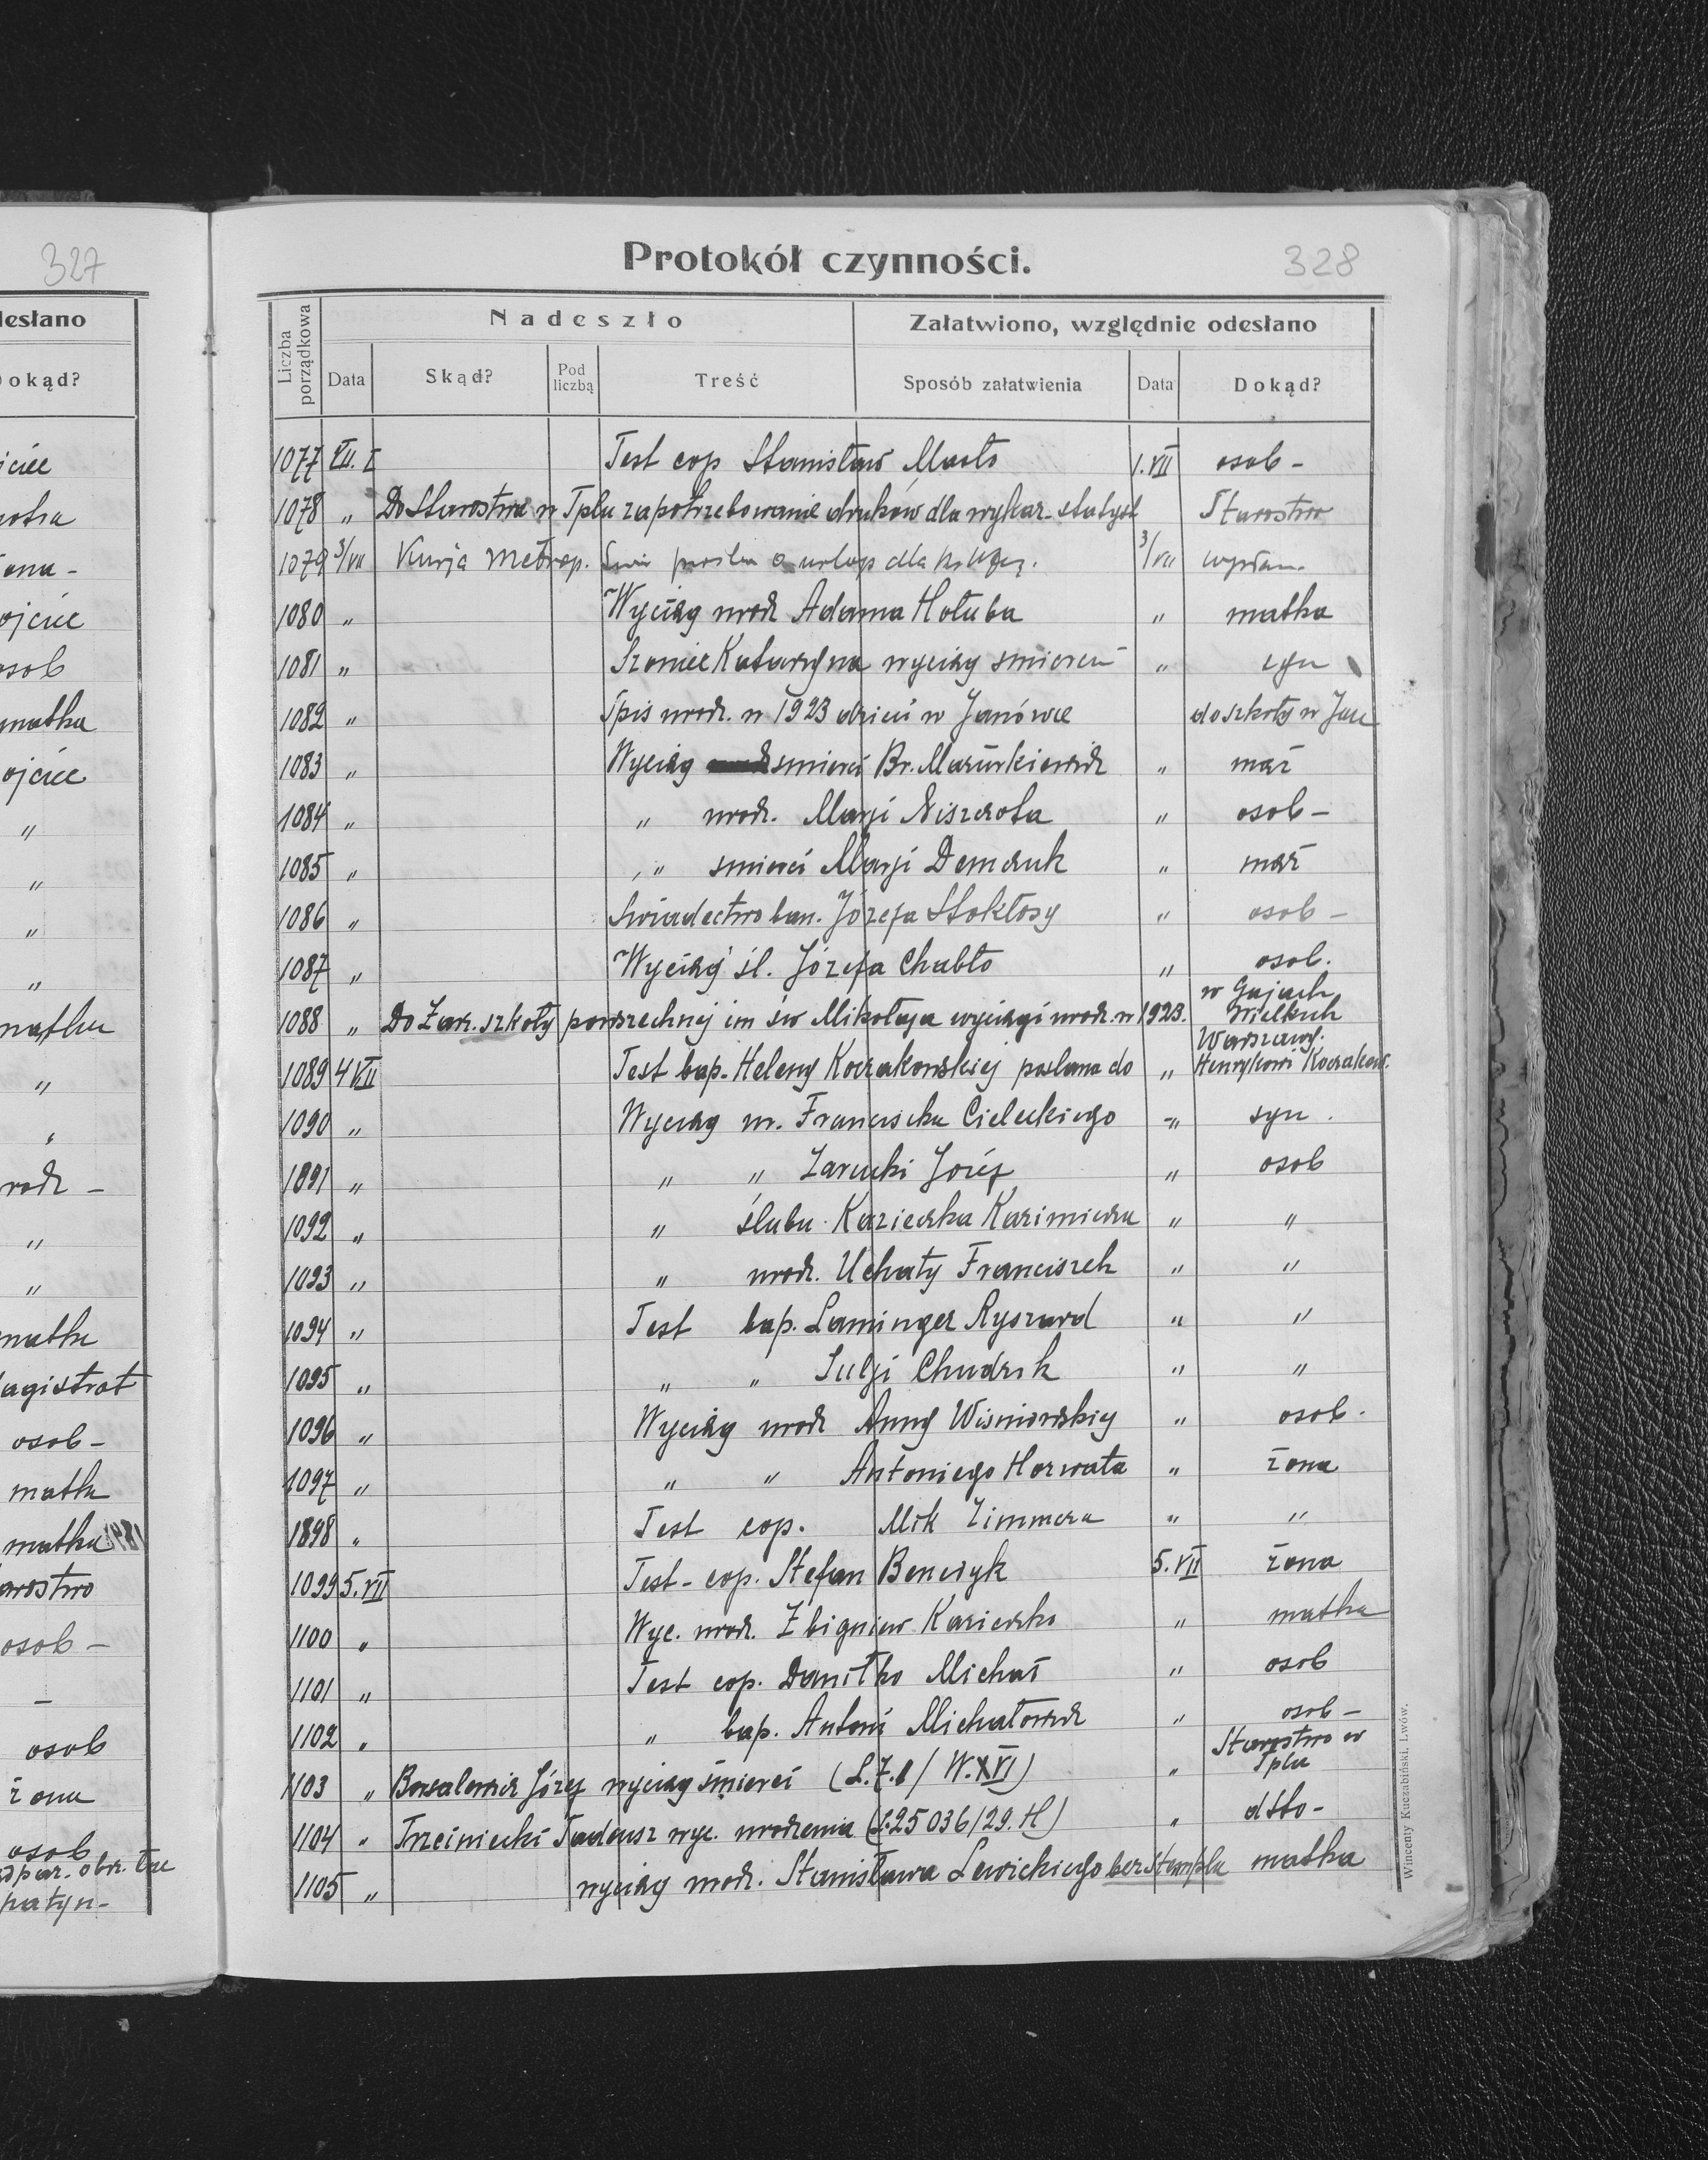 327
esłano
Dokąd?
ojciec
osob
matka
ojciec
"
"
"
"
"
"
"
"
osob -
matka
osob -
osob
żona
osob
Protokół czynności.
328
Liczba porządkowa
Nadeszło
Załatwiono, względnie odesłano
Data Skąd? Pod liczbą Treść Sposób załatwienia Data Dokąd?
1077 VII. I Test cop Stanisław 1.VII osob -
1078 " Do Starostwa w Tplu zapotrzebowanie druków dla wykaz. statyst Starostwo
1079 3/VII Kurja Metrop. o urlop dla 3/VII
1080 " Wyciąg urodz Adama Hołuba " matka
1081 " Katarzyna wyciąg śmierci " syn
1082 " Spis urodz. w 1923 dzieci w Janówce do szkoły w Jan
1083 " Wyciąg śmierci Br. Mazurkiewicz " mąż
1084 " " urodz. Marji " osob -
1085 " " śmierci Marji Demczuk " mąż
1086 " Świadectwo ban. Józefa Stokłosy " osob -
1087 " Wyciąg śl. Józefa Chabło " osob.
1088 " Do Zarz. szkoły powszechnej im św Mikołaja wyciągi urodz. w 1923. w Gajach Wielkich
1089 4 VII Test bap. Heleny Koczakowskiej posłano do " Warszawy. Henrykowi Koczakow.
1090 " Wyciąg ur. Franciszka Cieleckiego " syn.
1891 " " " Zarucki Józef " osob
1092 " " ślubu Kazieczka Kazimiera " "
1093 " " urodz. Uchały Franciszek " "
1094 " Test bap. Laminger Ryszard " "
1095 " " " Julji " "
1096 " Wyciąg urodz Anny Wiśniewskiej " osob -
1097 " " " Antoniego Horwata " żona
1898 " Test cop. Mik Zimmera " "
1099 5.VII Test - cop. Stefan Benczyk 5.VII żona
1100 " Wyc. urodz. Zbigniew Kazieczko " matka
1101 " Test cop. Daniłko Michał " osob
1102 " " bap. Antoni Michałowicz " osob -
1103 " Józef wyciąg śmierci " Starostwo w Tplu
1104 " Trzciniecki Tadeusz wyc. urodzenia (L.25036/29.H) " dtto -
1105 " wyciąg urodz. Stanisława Lewickiego bez stempla matka
Wincenty Kuczabiński, Lwów.